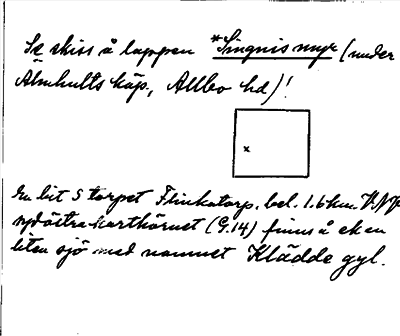 Se skiss å lappen *Singnis myr (under
Älmhults köp., Allbo hd)!
x
En bit S torpet Flinkatorp, bel. 1.6 km. V.NV
sydöstra karthörnet (G.14) finns å ek en
liten sjö med namnet Klädde gyl.